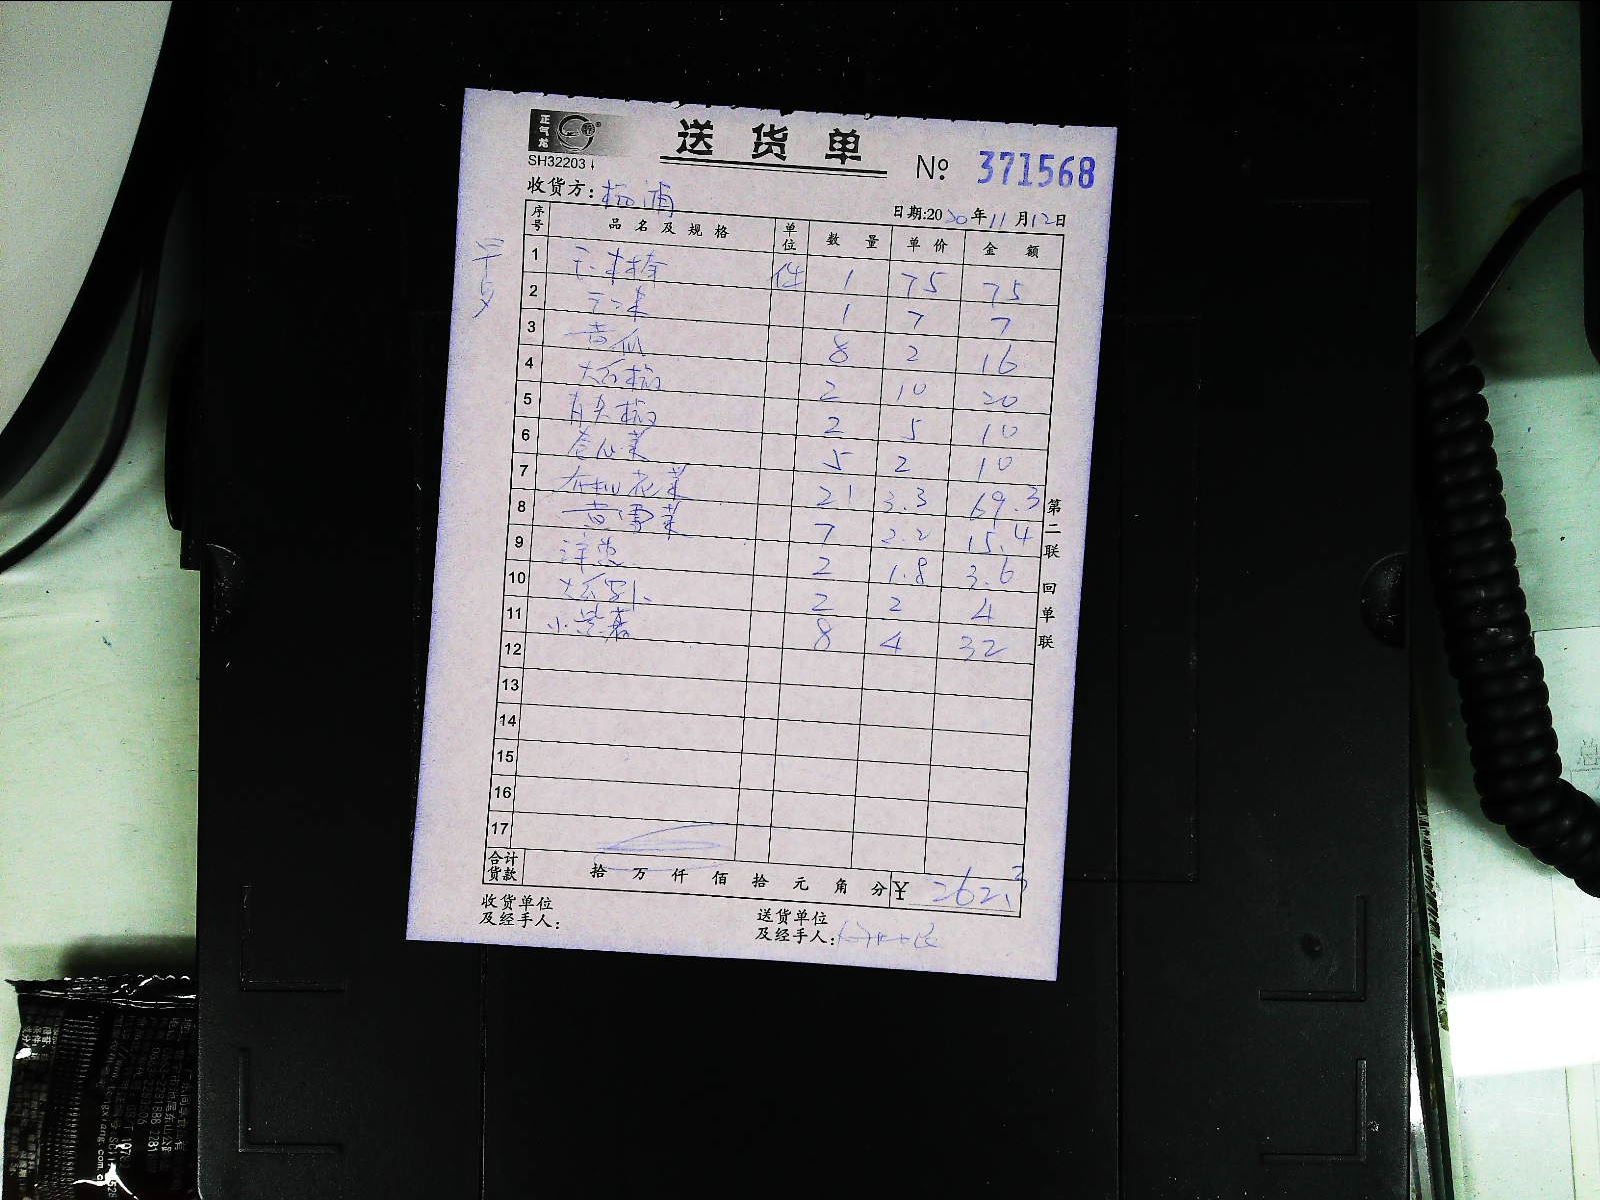 正气龙
送货单
SH32203
No. 371568
收货方: 杨浦
日期:2020年11月12日
序号 品名及规格 单位 数量 单价 金额
1 件 1 75 75
2 1 7 7
3 黄瓜 8 2 16
4 大红椒 2 10 20
5 青尖椒 2 5 10
6 卷心菜 5 2 10
7 有机花菜 21 3.3 69.3
8 黄芽菜 7 2.2 15.4
9 洋葱 2 1.8 3.6
10 2 2 4
11 8 4 32
12
13
14
15
16
17
第二联 回单联
合计货款 拾 万 仟 佰 拾 元 角 分 ¥ 262.3
收货单位
及经手人:
送货单位
及经手人: